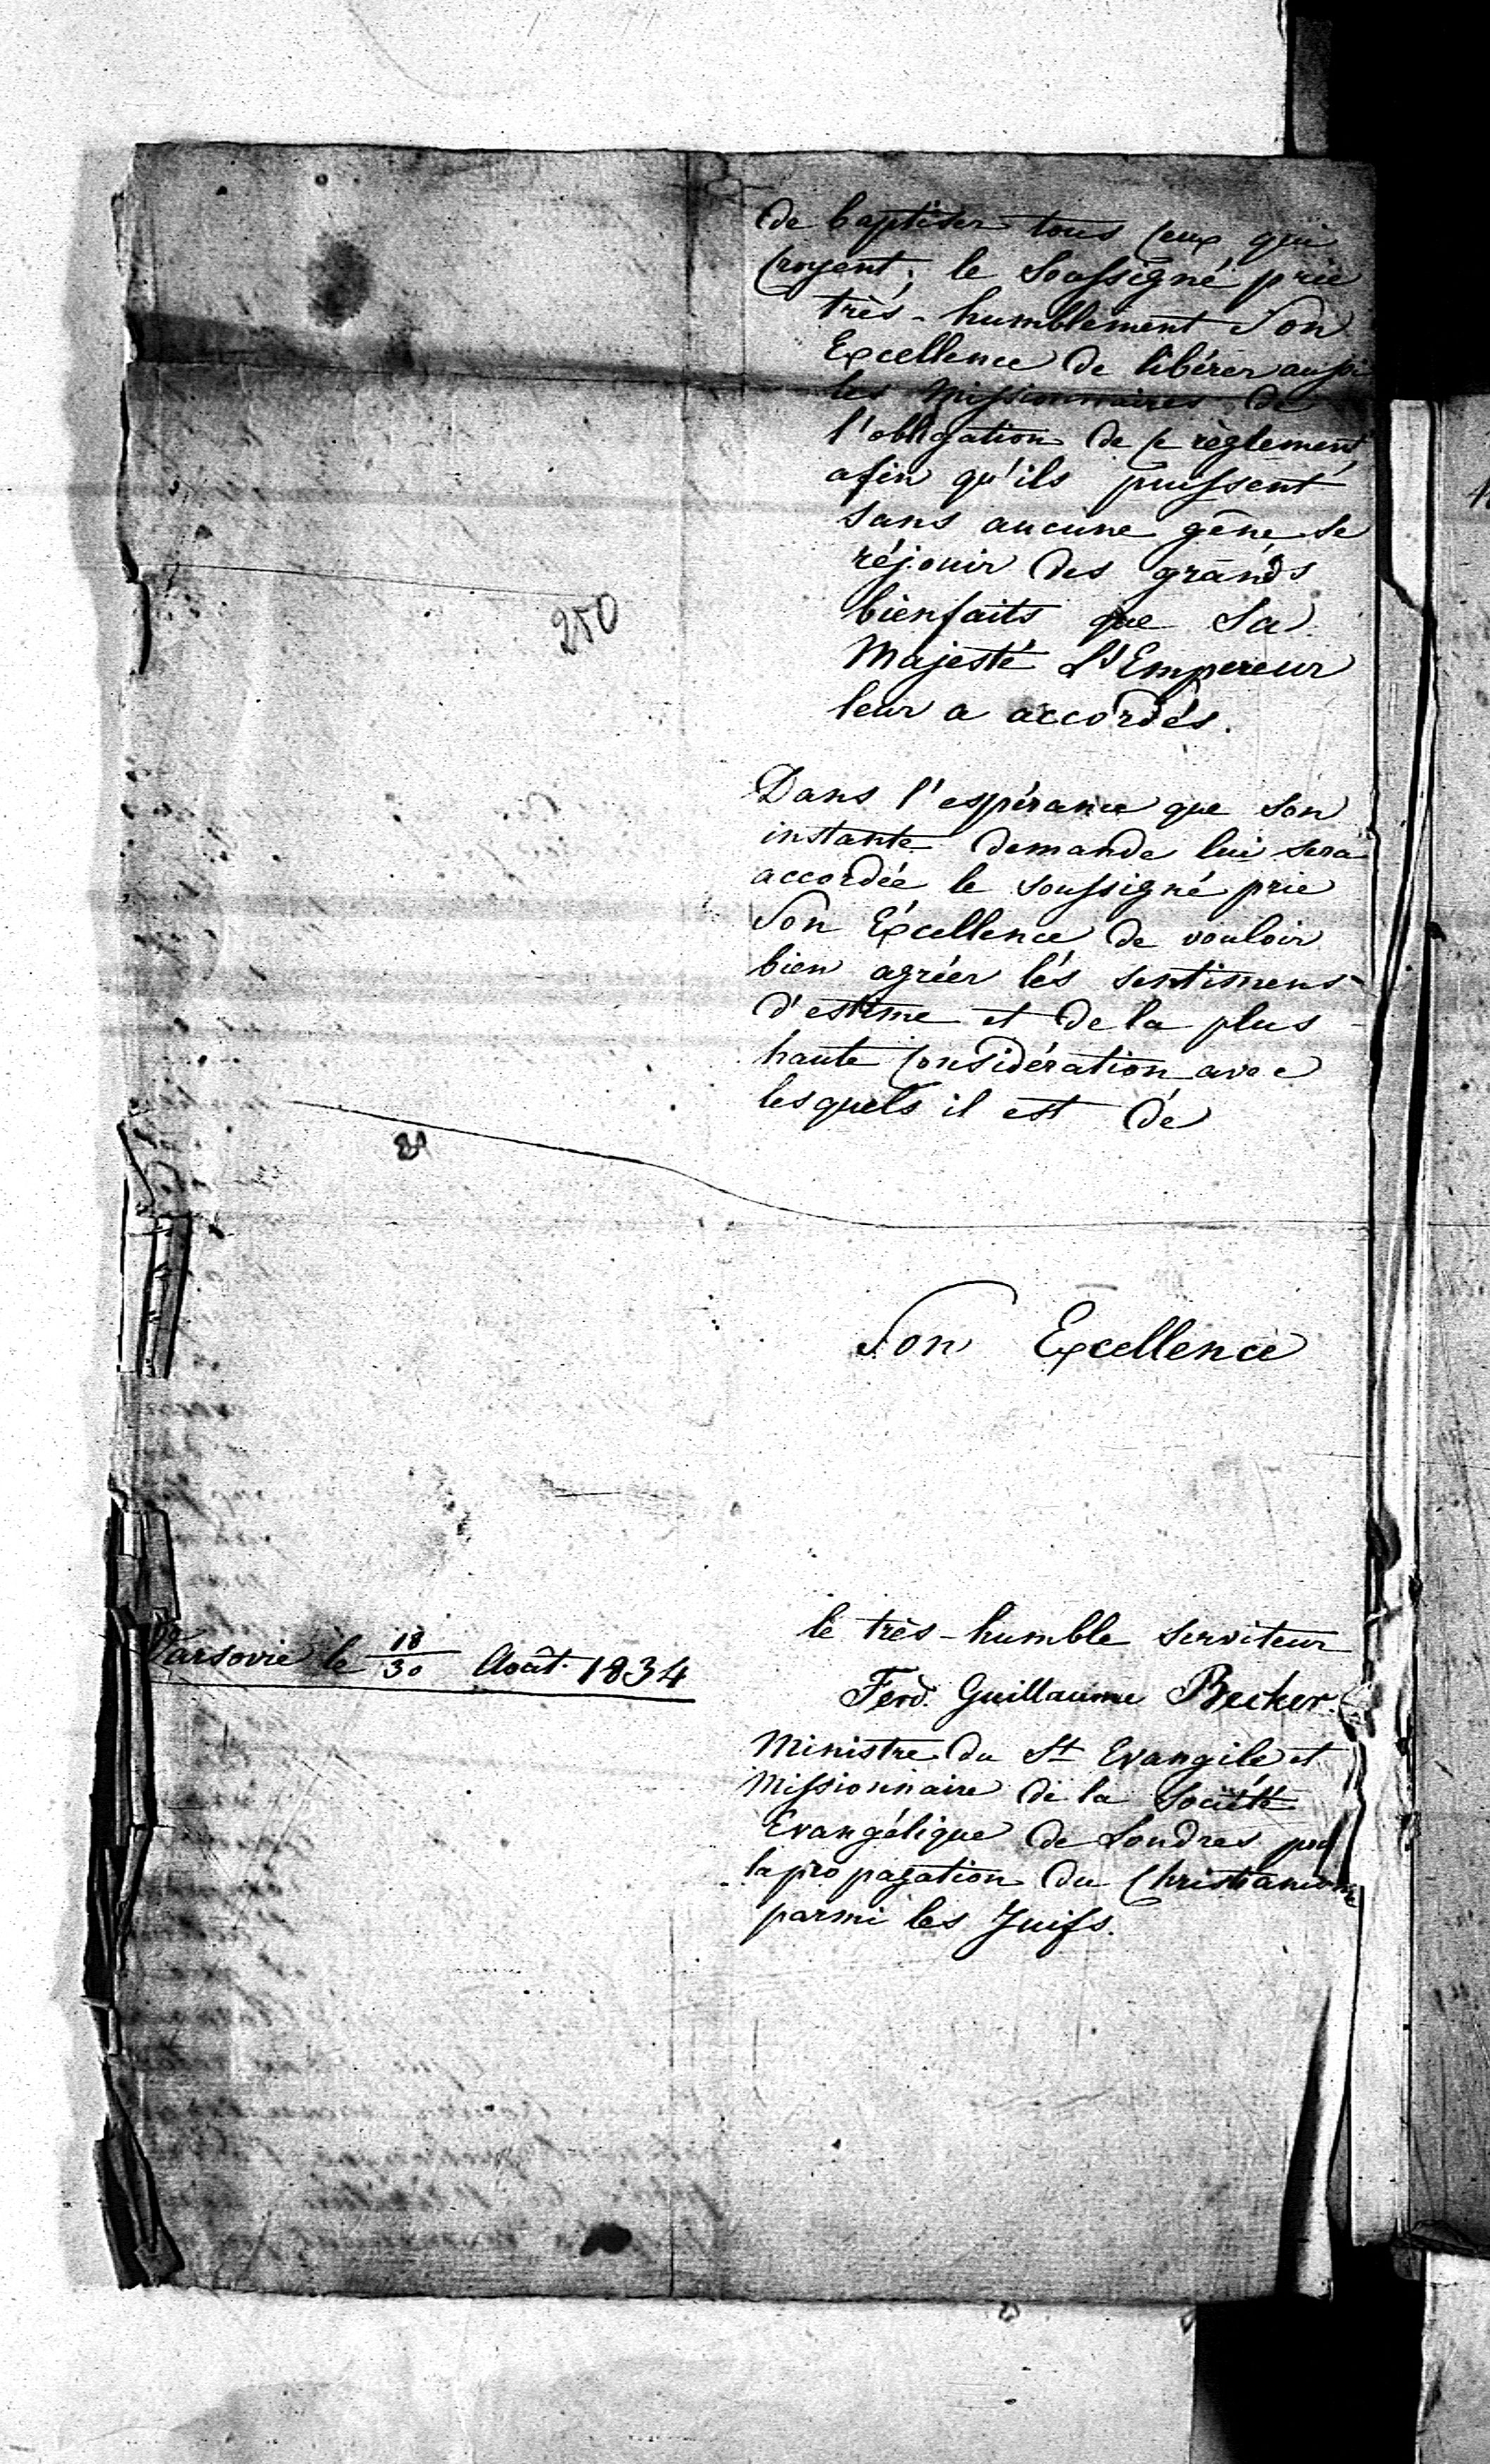 de baptiser tous ceux qui
croyent; le soussigné prie
très-humblement Son
Excellence de libérer aussi
les Missionnaires de
l'obligation de ce règlement
afin qu'ils puissent
sans aucune gêne se
réjouir des grands
bienfaits que Sa
Majesté L'Empereur
leur a accordés.
250
Dans l'espérance que son
instante demande lui sera
accordée le soussigné prie
Son Excellence de vouloir
bien agréer les sentimens
d'estime et de la plus
haute considération avec
lesquels il est de
Son Excellence
le très-humble serviteur
Varsovie le 18/30 Août 1834
Ferd. Guillaume Becker
Ministre du St Evangile et
Missionnaire de la Société
Evangélique de Londres pour
la propagation du Christianisme
parmi les Juifs.